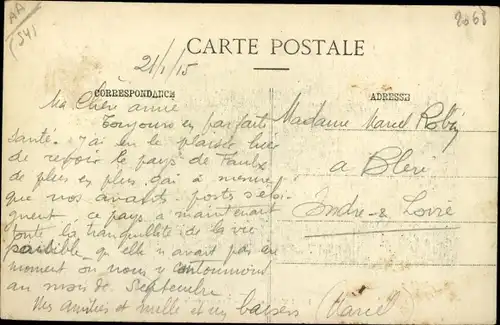 AA
(54)
2068
CARTE POSTALE
21/1/15
CORRESPONDANCE
ADRESSE
Ma Chère amie
Toujours en parfaite
santé. j'ai eu le plaisir hier
de revoir le pays de Faulx
de plus en plus gai à mesure
que nos avants-postes s'eloi
gnent, ce pays a maintenant
toute la tranquillité de la vie
paisible qu'elle n'avait pas au
moment où nous y cantonnions
au mois de Septembre
Mes amitiés et mille et un baisers
Marcel
Madame Marcel Robin
a Bléré
Indre-&-Loire